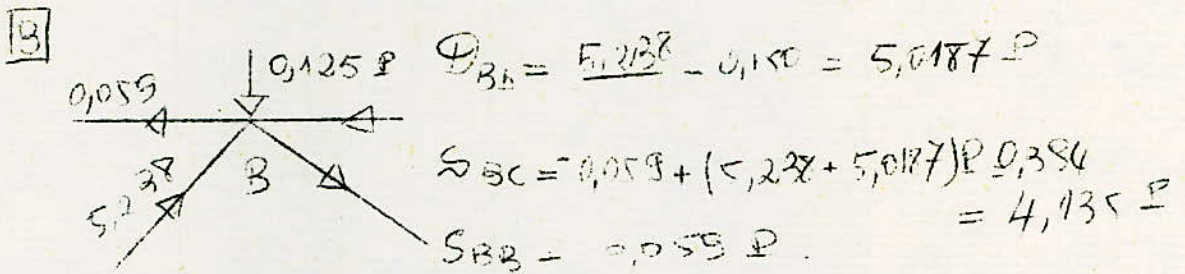 B
0,125 P
0,059
5,238
B
D_Bb = 5,238 - 0,150 = 5,0187 P
S_BC = -0,059 + (5,238 + 5,0187)P 0,394
= 4,135 P
S_BB = 0,059 P.